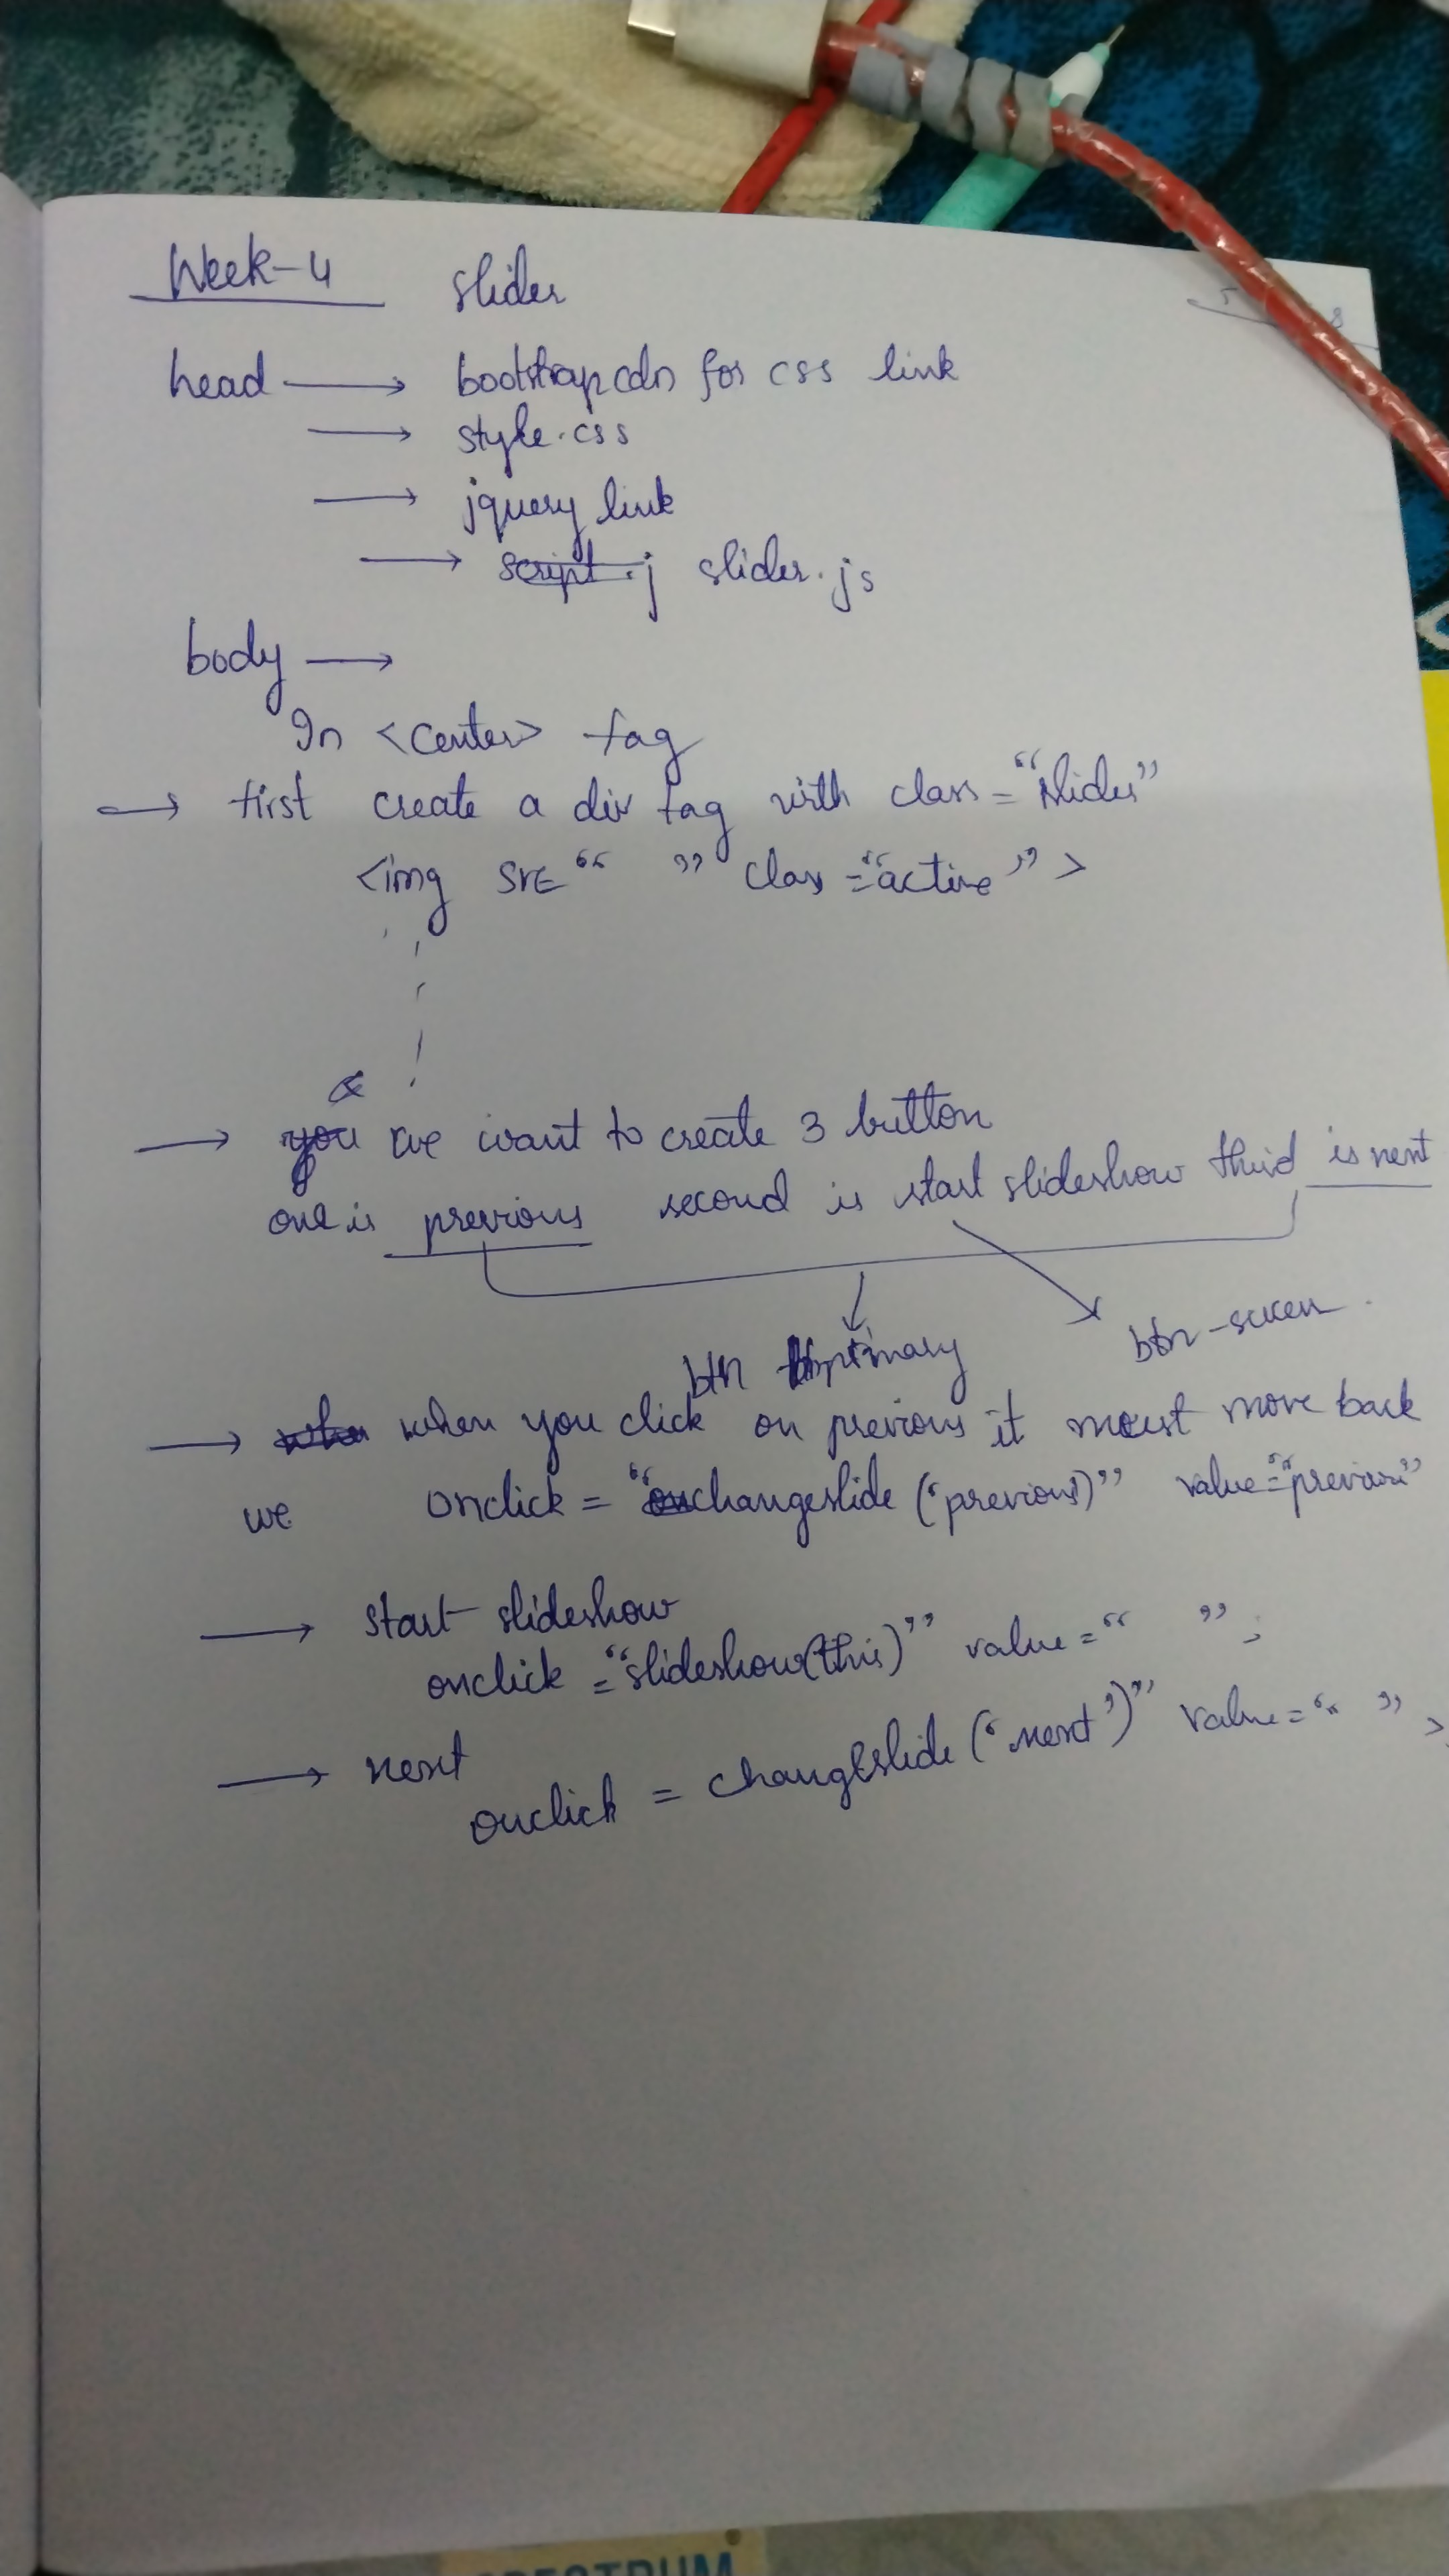 Week-4 slider
head → bootstrap cdn for css link
→ style.css
→ jquery link
→ script.j slider.js
body →
In <center> tag
→ first create a div tag with class="slider"
<img src=" " class="active">
&
→ you we want to create 3 button
one is previous second is start slideshow third is next
btn primary btn-success
→ when when you click on previous it must move back
we onclick = "changeslide('previous')" value="previous"
→ start slideshow
onclick = "slideshow(this)" value=" ";
→ next
onclick = changeslide('next')" value=" ">
SPECTRUM